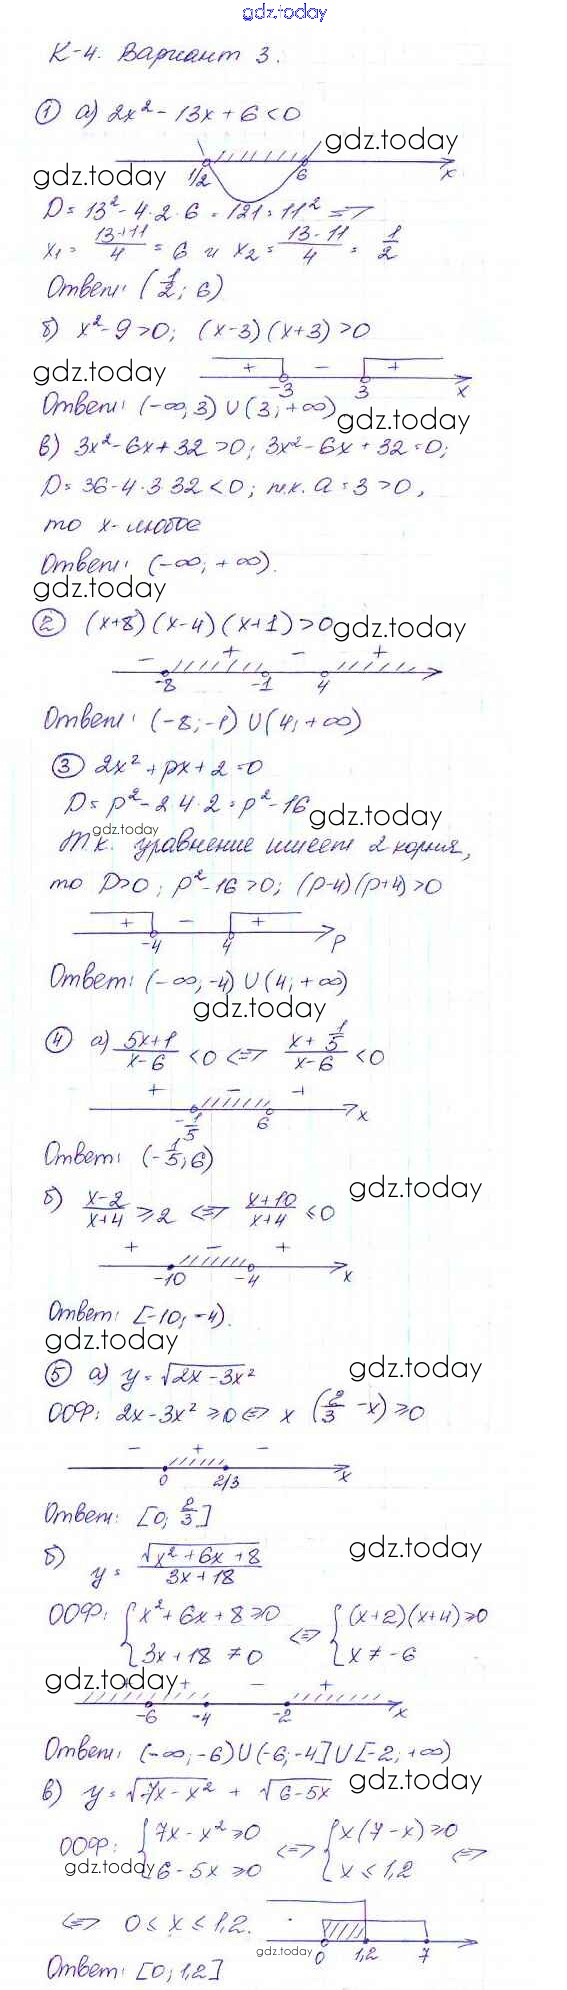 gdz.today
К-4. Вариант 3.
① а) 2x² - 13x + 6 < 0
gdz.today
gdz.today
1/2 6 x
D = 13² - 4·2·6 = 121 = 11² ⇒
x₁ = (13+11)/4 = 6 и x₂ = (13-11)/4 = 1/2
Ответ: (1/2; 6)
б) x² - 9 > 0; (x-3)(x+3) > 0
gdz.today
+ - +
-3 3 x
Ответ: (-∞; 3) ∪ (3; +∞)
gdz.today
в) 3x² - 6x + 32 > 0; 3x² - 6x + 32 = 0;
D = 36 - 4·3·32 < 0; т.к. a = 3 > 0,
то x - любое
Ответ: (-∞; +∞).
gdz.today
② (x+8)(x-4)(x+1) > 0
gdz.today
- + - +
-8 -1 4
Ответ: (-8; -1) ∪ (4; +∞)
③ 2x² + px + 2 = 0
D = p² - 2·4·2 = p² - 16
gdz.today
gdz.today
Т.к. уравнение имеет 2 корня,
то D>0; p² - 16 > 0; (p-4)(p+4) > 0
+ - +
-4 4 p
Ответ: (-∞; -4) ∪ (4; +∞)
gdz.today
④ а) (5x+1)/(x-6) < 0 ⇔ (x + 1/5)/(x-6) < 0
+ - +
-1/5 6 x
Ответ: (-1/5; 6)
gdz.today
б) (x-2)/(x+4) ≥ 2 ⇔ (x+10)/(x+4) ≤ 0
+ - +
-10 -4 x
Ответ: [-10; -4).
gdz.today
gdz.today
⑤ а) y = √(2x - 3x²)
ООФ: 2x - 3x² ≥ 0 ⇔ x (2/3 - x) ≥ 0
- + -
0 2/3 x
Ответ: [0; 2/3]
gdz.today
б) y = √(x² + 6x + 8)/(3x + 18)
ООФ: { x² + 6x + 8 ≥ 0 ⇔ { (x+2)(x+4) ≥ 0
3x + 18 ≠ 0 x ≠ -6
gdz.today
+ + - +
-6 -4 -2 x
Ответ: (-∞; -6) ∪ (-6; -4] ∪ [-2; +∞)
в) y = √(7x - x²) + √(6 - 5x)
gdz.today
ООФ: { 7x - x² ≥ 0 ⇔ { x(7 - x) ≥ 0 ⇔
6 - 5x ≥ 0 x ≤ 1,2
gdz.today
⇔ 0 ≤ x ≤ 1,2.
gdz.today
0 1,2 7
Ответ: [0; 1,2]